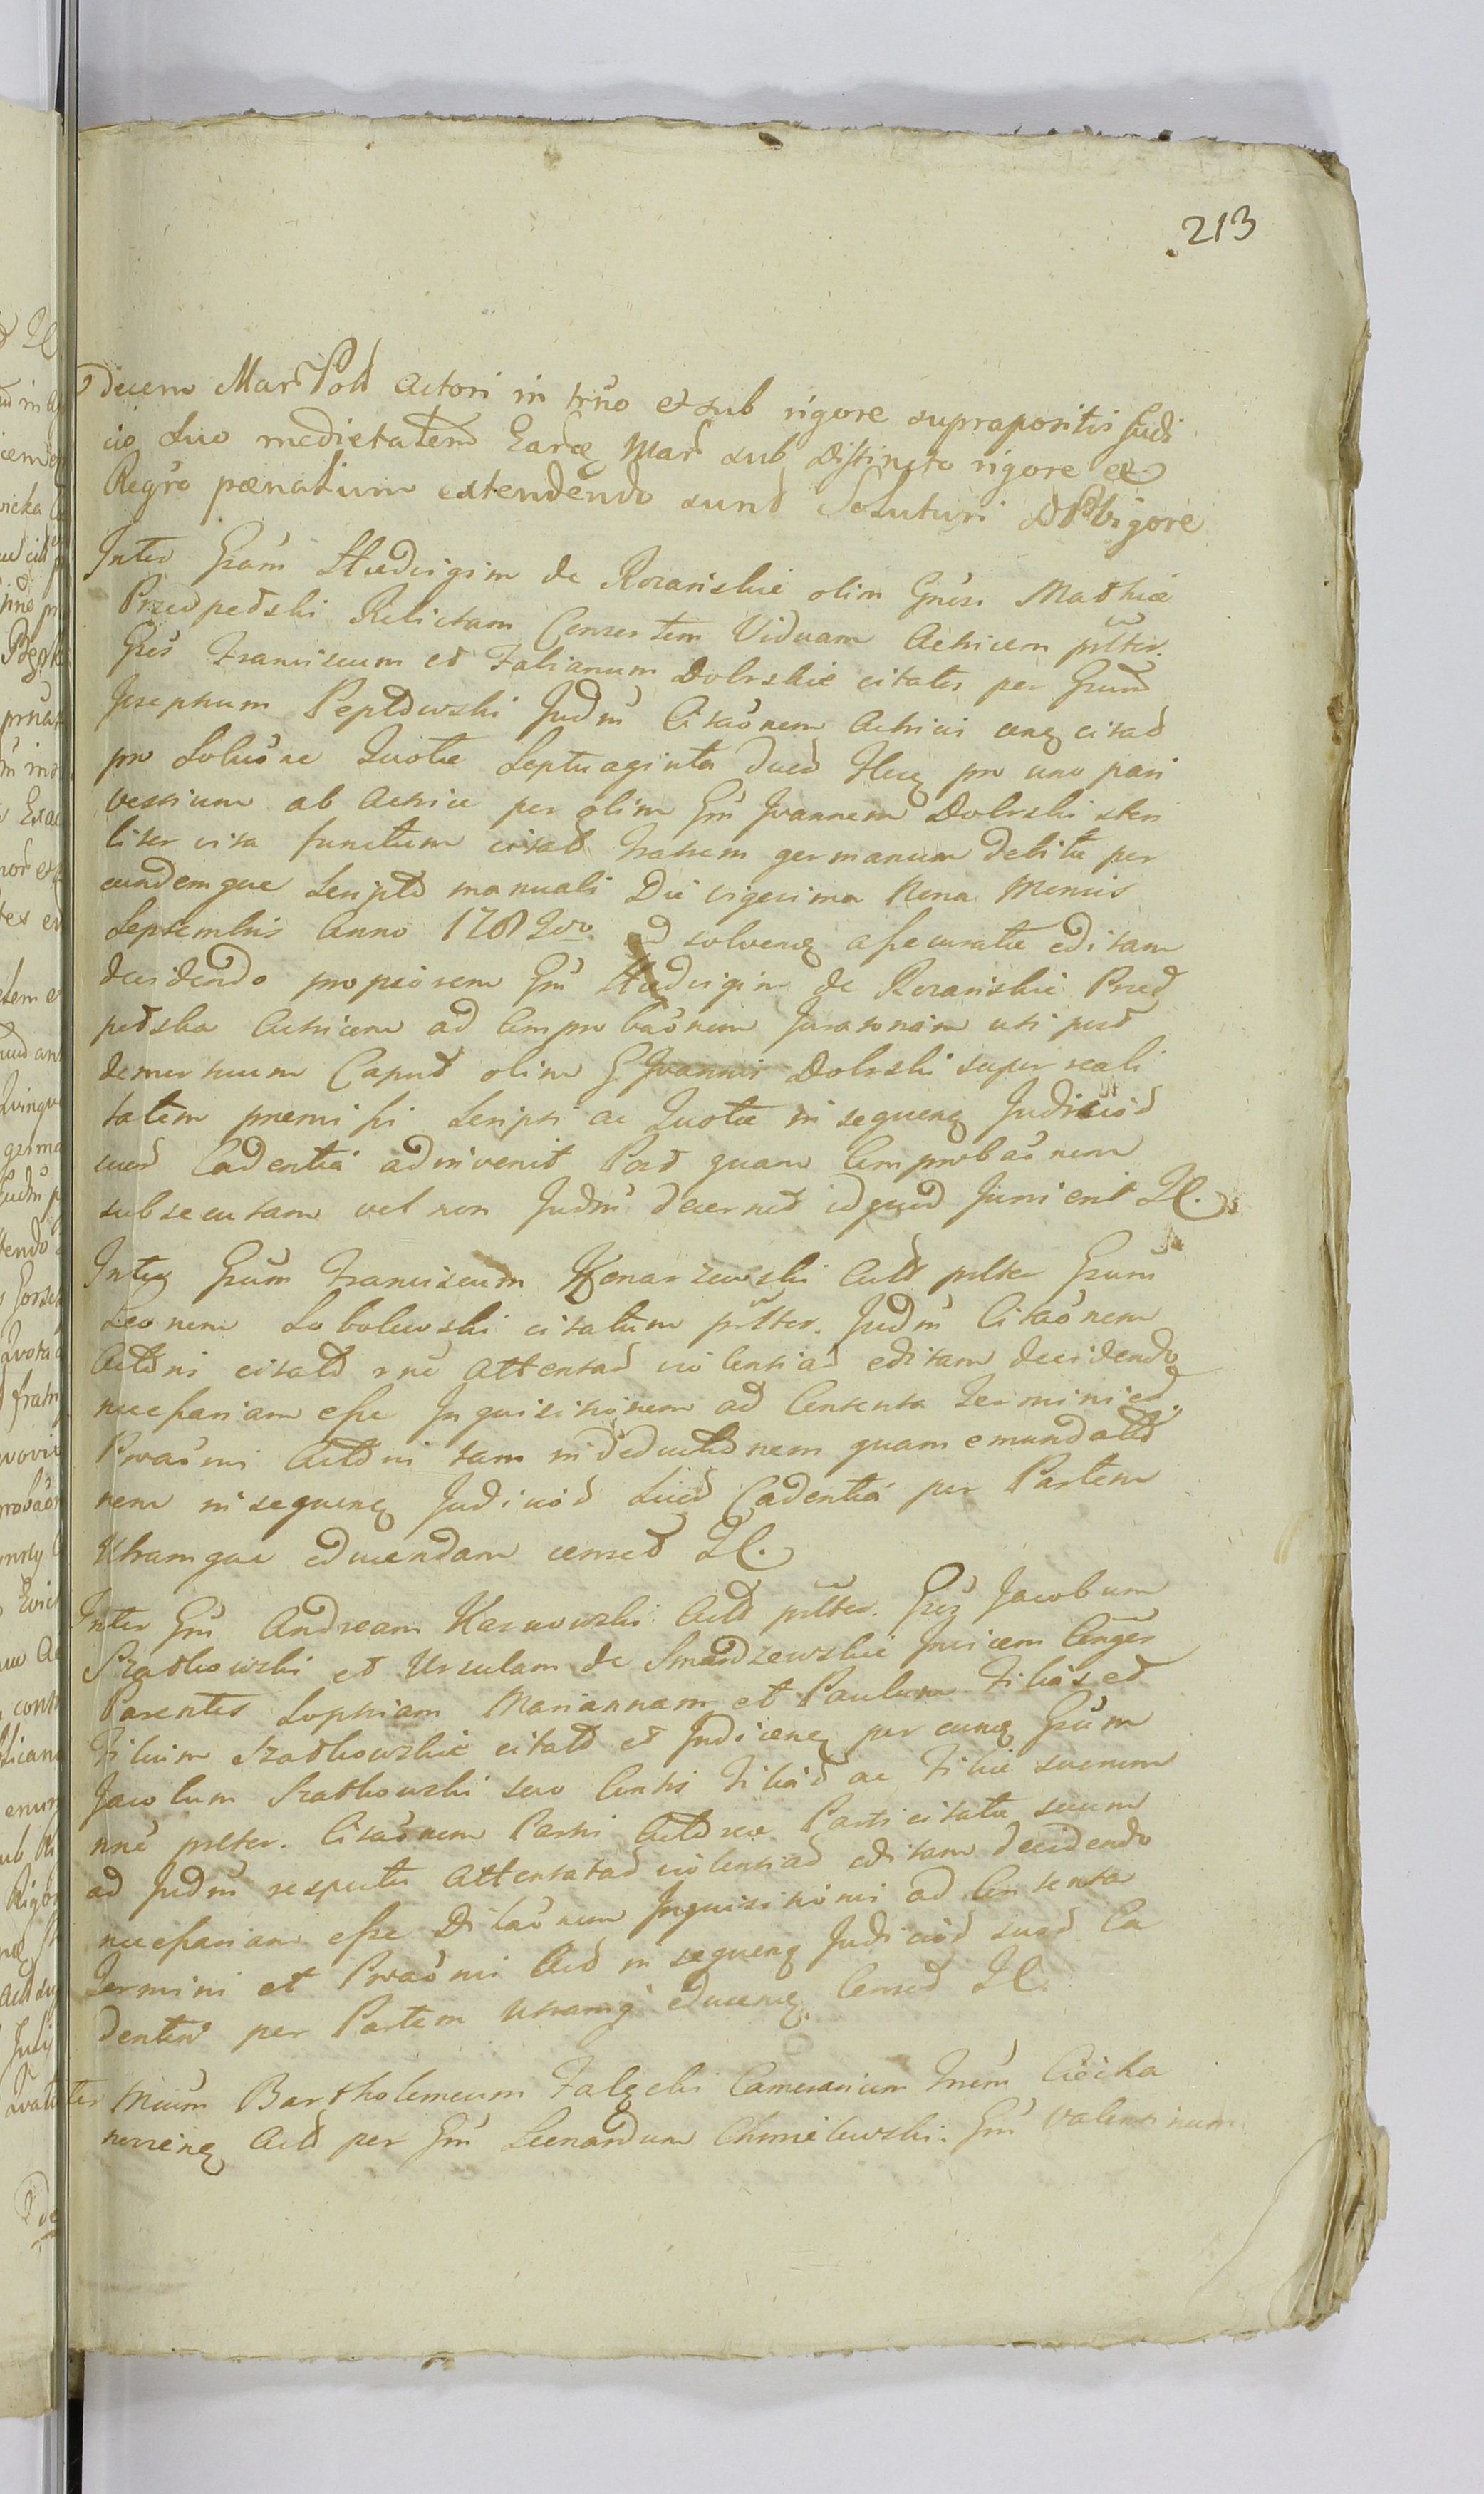 213
Decem Mar Pol Actori in trno et sub rigore suprapositis Judi
cio suo medietatem Earq Mar sub distincto rigore et
Regro pænalium extendendo sunt Soluturi Vigore
Inter Gram Hedvigim de Rozanskie olim Gnosi Mathiæ
Przedpedski Relictam Consortem Viduam Actricem plter.
Gres Franciscum et Fabianum Dobrskie citatos per Grum
Josephum Pepłowski Judm Citaonem Actrici cenq citad
pro Soluone Quotæ Septuaginta duod Flenq pro uno pari
vestium ab Actrice per olim Gm Joannem Dobrski steri
liter vita functum citat fratrem germanum debitæ per
eundemque Scripto manuali Die vigesima Nona Mensis
Septembris Anno 1782do ad solvenq assecuratæ editam
decidendo propiorem Gm Hedvigim de Rozanskie Pred
pedska Actricem ad Comprobaonem Juratoriam uti post
demortuum Caput olim G Joannis Dobrski super reali
tatem præmissi Scripti ac Quotæ in sequenq Judiciod
suod Cadentia adinvenit Post quam Comprobaonem
subsecutam vel non Judm decernet id quod Juri erit
Inter Grum Franciscum Konarzewski Actd plter Grum
Leonem Sobolewski citatum plter. Judm Citaonem
Actori citato rne Attentad violentiad editam decidendo
necessariam esse Inquisitionem ad Contenta Termini et
Proaoni Actori tam in deductionem quam emundatio
nem in sequenq Judiciod Suod Cadentia per Partem
Utramque educendam censet
Inter Gm Andream Karnowski Actd plter. Gres Jacobum
Szatkowski et Ursulam de Smardzewskie Invicem Conges
Parentes Sophiam Mariannam et Paulum Filias et
Filium Szatkowskie citatd et Judicenq per eunq Grum
Jacobum Szatkowski suo Contis Filiad ac Filii suorum
nne plter. Citaonem Parti Actoreæ Parti citatæ secum
ad Judm respectu Attentatad violentiad editam decidendo
necessariam esse Dilaonem Inquisitionis ad Contenta
Termini et Proaoni Act in sequenq Judiciod suod Ca
dentia per Partem utramq educenq Censet
ter Mcum Bartholomeum Falęcki Camerarium Trem Ciecha
noviens Actd per Gm Leonardum Chmielewski. Gm Valentinum